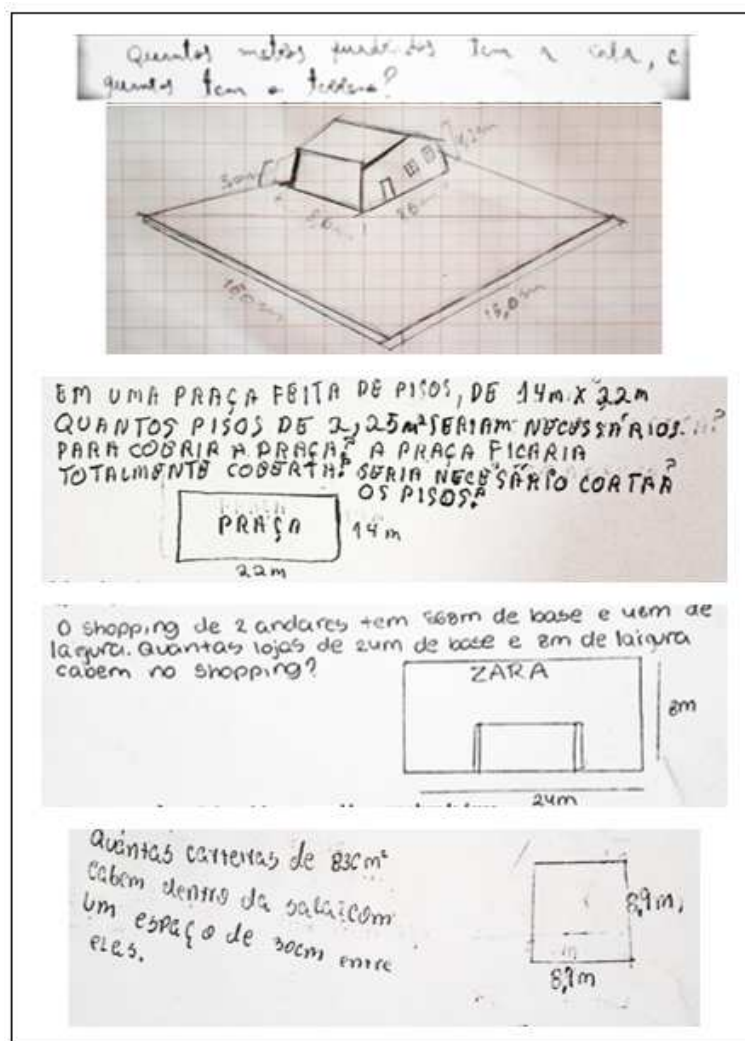 Quantos metros quadrados tem a casa, e
quantos tem o terreno?
8,0m
15,0m
EM UMA PRAÇA FEITA DE PISOS, DE 14m X 22m
QUANTOS PISOS DE 2,25m² SERIAM NECESSÁRIOS
PARA COBRIR A PRAÇA? A PRAÇA FICARIA
TOTALMENTE COBERTA? SERIA NECESSÁRIO CORTAR
OS PISOS?
PRAÇA
14m
22m
O shopping de 2 andares tem 568m de base e 48m de
largura. Quantas lojas de 24m de base e 8m de largura
cabem no shopping?
ZARA
8m
24m
Quantas carteiras de
cabem dentro da sala com
um espaço de 30cm entre
elas.
8,9m
8,9m